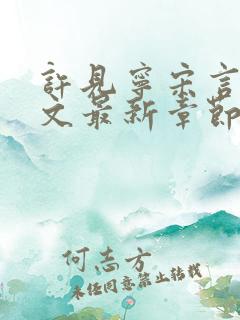 許見寧宋言
文最新章節
何志方
未經同意禁止轉載